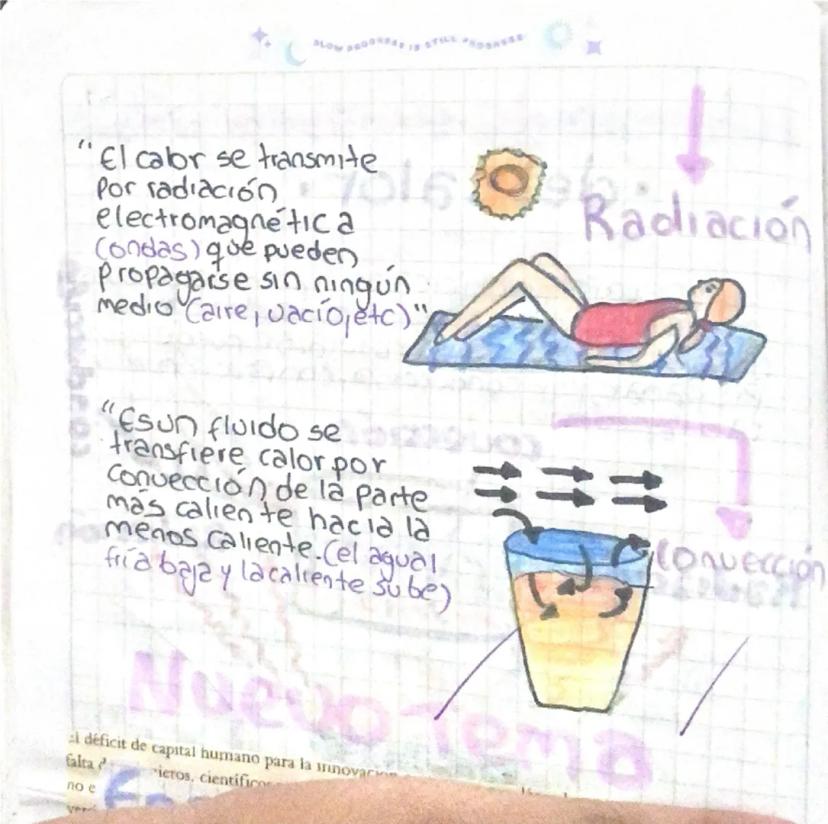 SLOW PROGRESS IS STILL PROGRESS
"El calor se transmite
por radiación
electromagnética
(ondas) que pueden
propagarse sin ningún
medio (aire, vacío, etc)"
Radiación
"Es un fluido se
transfiere calor por
convección de la parte
más caliente hacia la
menos caliente. (el agua
fría baja y la caliente sube)
Convección
Nuevo Tema
déficit de capital humano para la
falta
científicos
no e